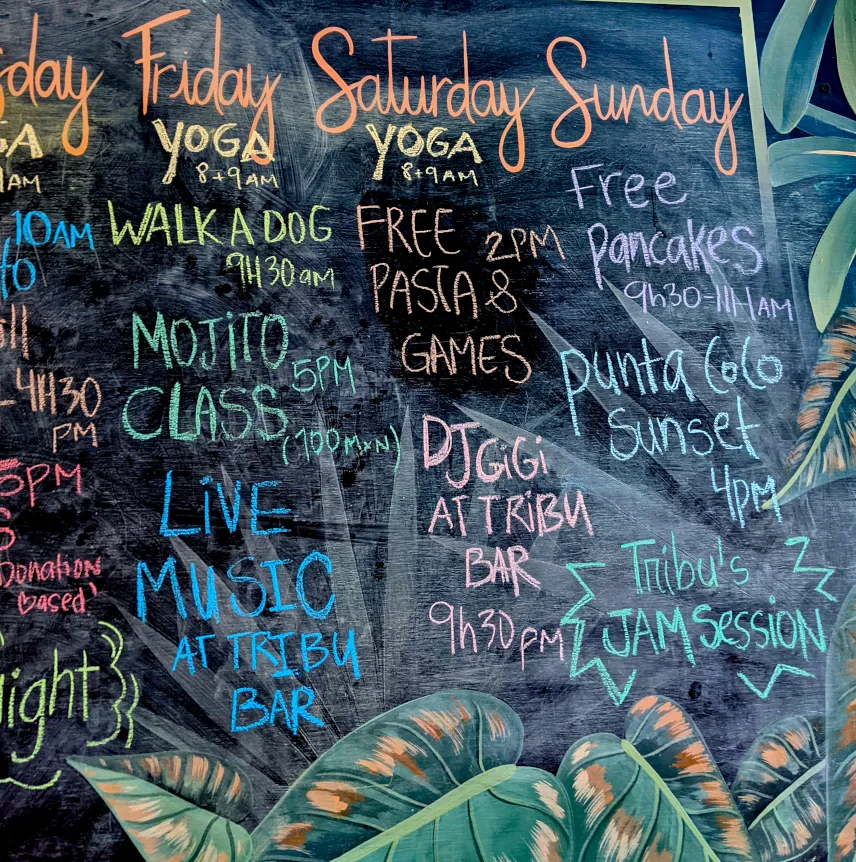 day
GA
AM
10AM
to
ill
-4H30
PM
5PM
S
Donation
based'
Night
Friday
YOGA
8+9AM
WALK A DOG
9H30am
MOJiTO
CLASS 5PM
(100MXN)
LiVE
MUSIC
AT TRIBU
BAR
Saturday
YOGA
8+9AM
FREE 2PM
PASTA &
GAMES
DJ GiGi
AT TRIBU
BAR
9h30pm
Sunday
Free
pancakes
9h30-11HAM
punta CoCo
Sunset
4pm
Tribu's
JAM SESSiON